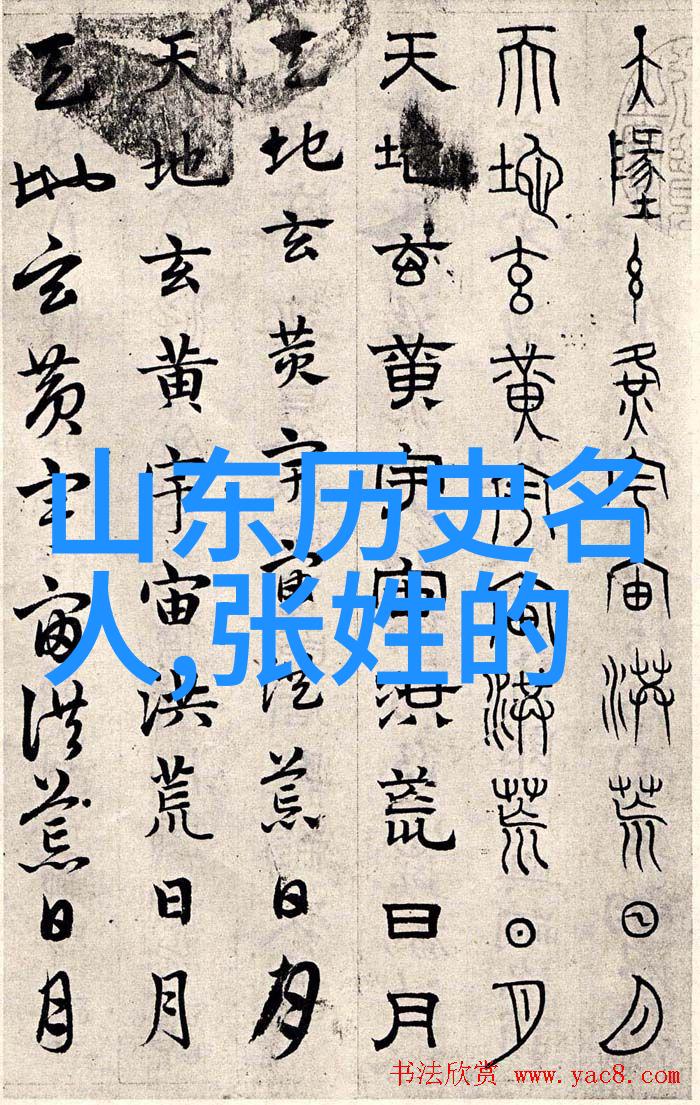 天墬玄黄宇宙洪荒日月
天地玄黄宇宙洪荒日月
天地玄黄宇宙洪荒日月
天地玄黄宇宙洪荒日月
天地玄黄宇宙洪荒日月
天地玄黄宇宙洪荒日月
山东历史名
人,张姓的
书法欣赏 www.yac8.com